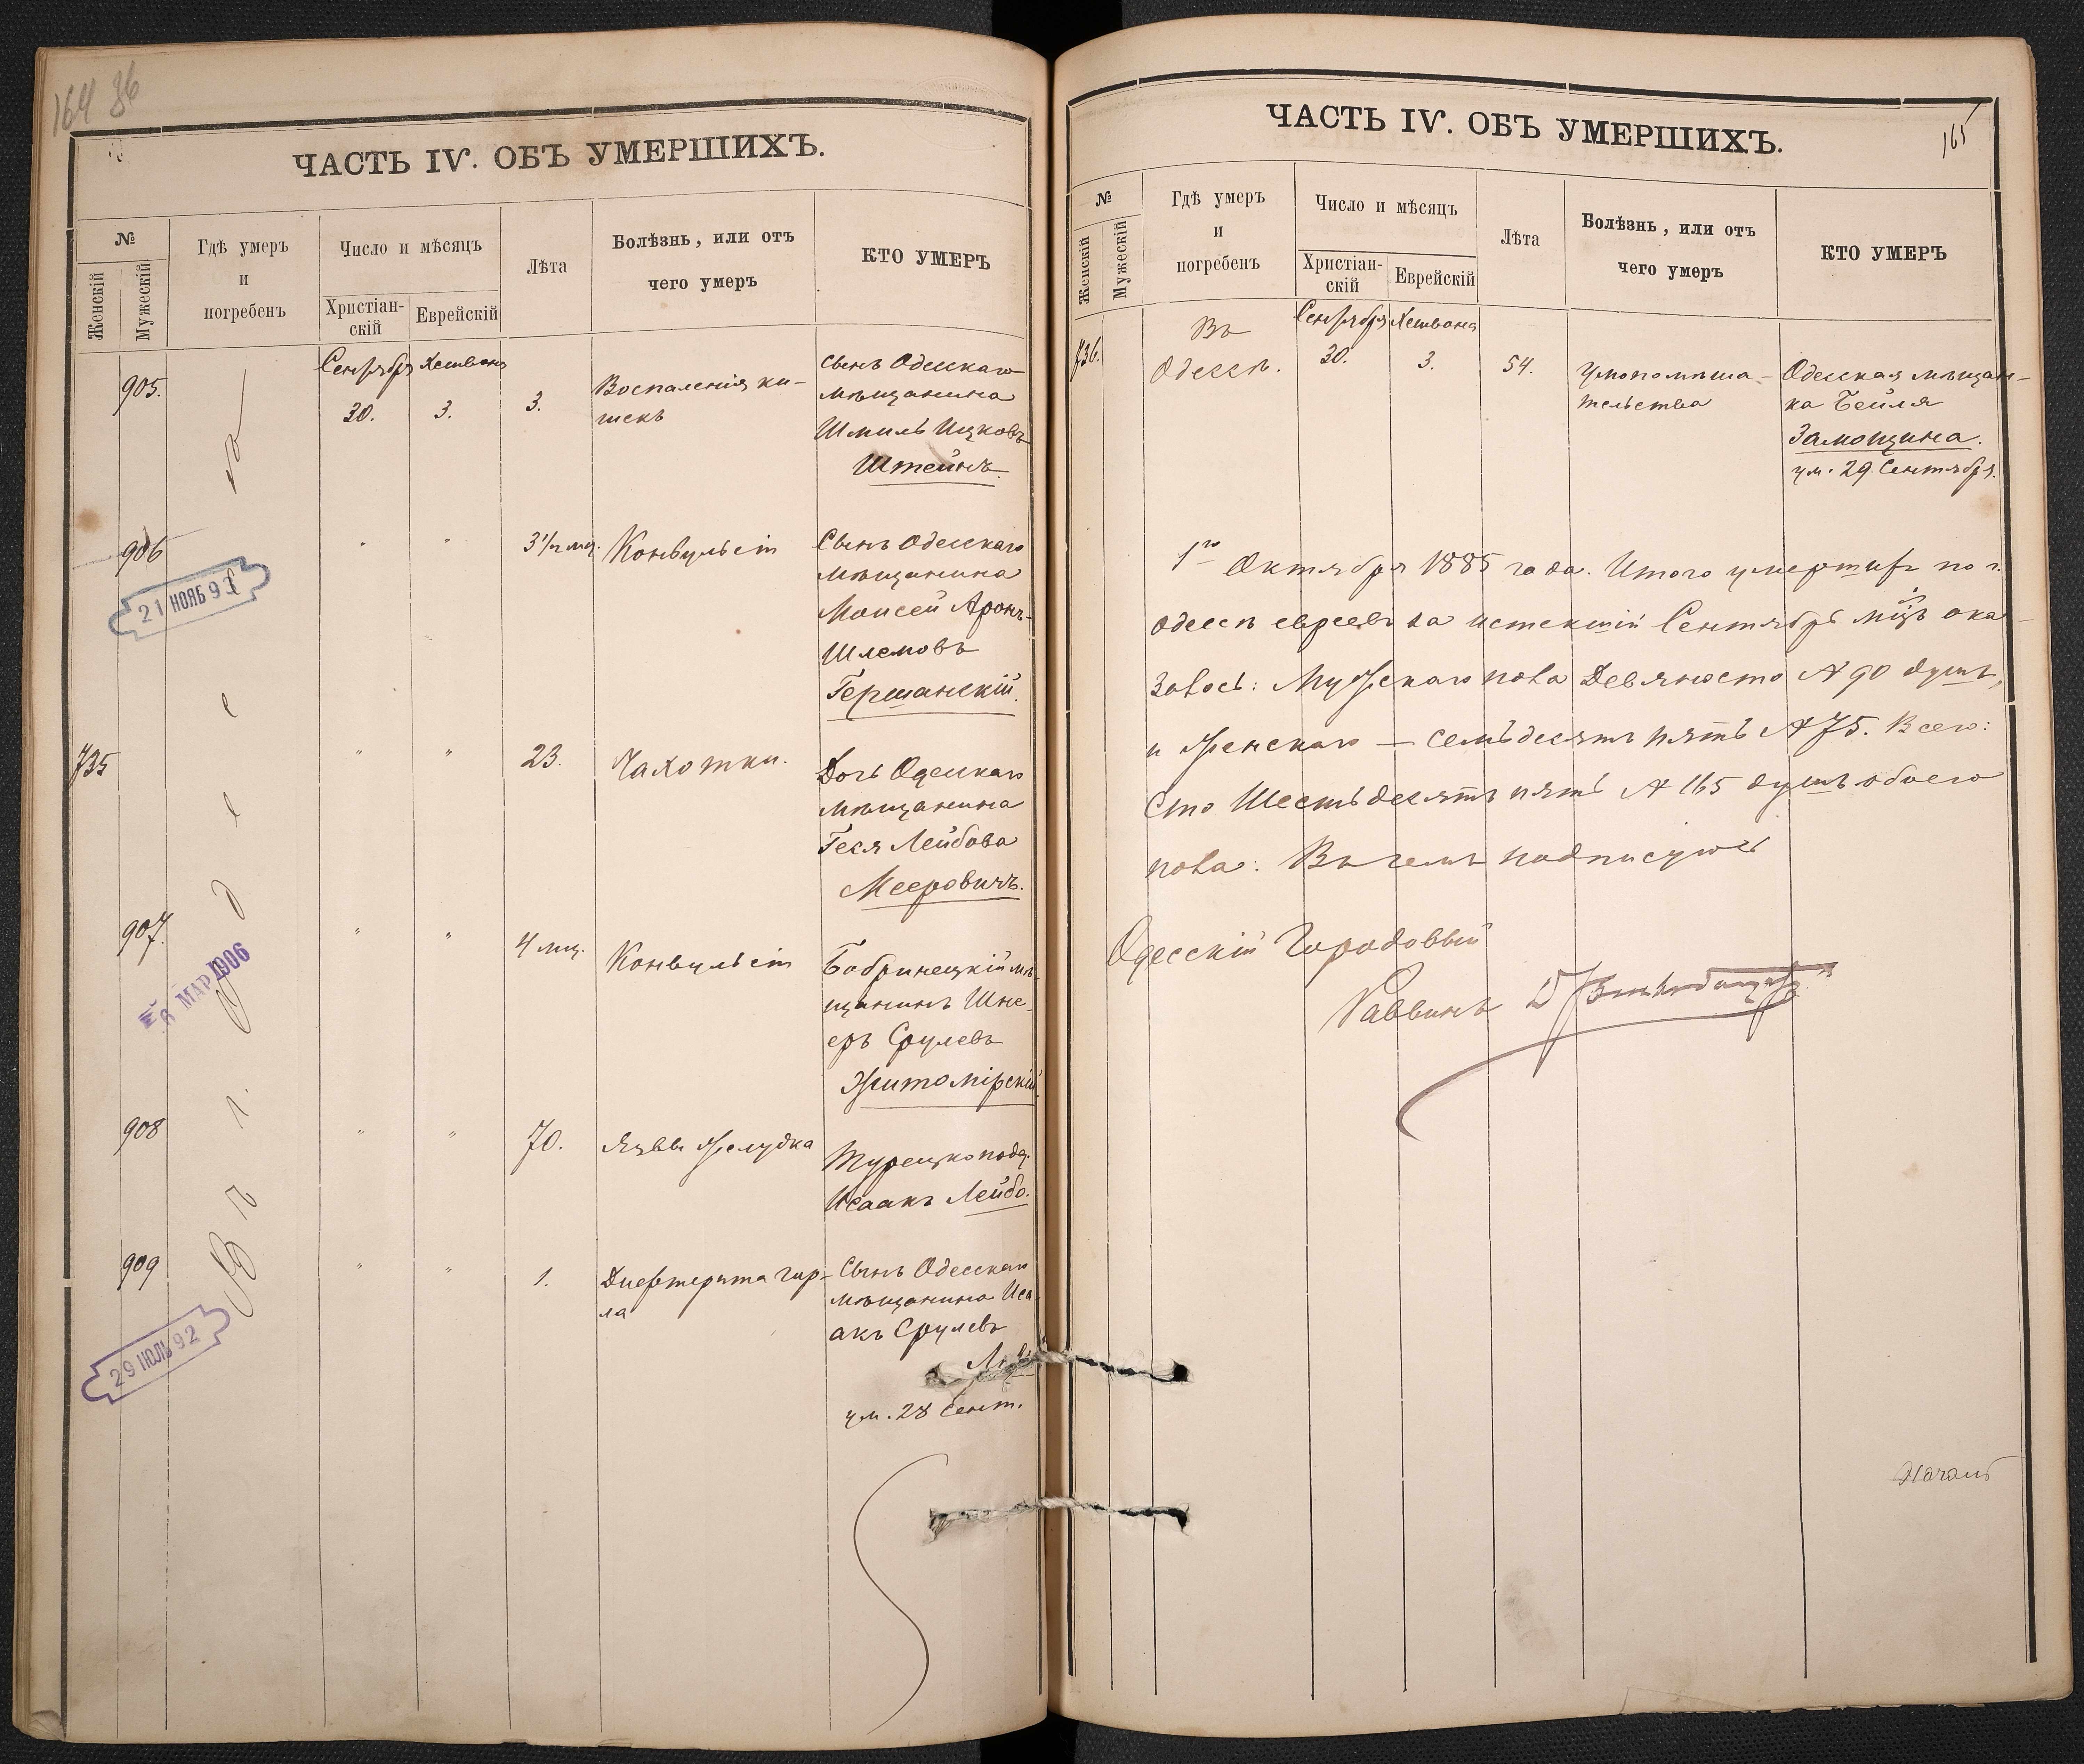 164 36
ЧАСТЬ IV. ОБЪ УМЕРШИХЪ.
№
Женскій
Мужескій
Гдѣ умеръ
и
погребенъ
Число и мѣсяцъ
Христіан-
скій
Еврейскій
Лѣта
Болѣзнь, или отъ
чего умеръ
КТО УМЕРЪ
Въ г. Одессѣ
Сентября Хешвона
905.
30.
3.
3.
Воспаленія ки-
шекъ
Сынъ Одесскаго
мѣщанина
Шмиль Ицковъ
Штейнъ.
906
"
"
3 1/2 мц.
Конвульсіи
Сынъ Одесскаго
мѣщанина
Моисей Аронъ-
Шлемовъ
Гершанскій.
21 НОЯБ 9
735
"
"
23.
Чахотки.
Дочь Одесскаго
мѣщанина
Геся Лейбова
Мееровичъ.
907.
"
"
4 мц.
Конвульсіи
Бобринецкій мѣ-
щанинъ Шне-
еръ Срулевъ
Житомірскій.
6 МАР 1906
908
"
"
70.
Язвы желудка
Турецкопод.
Исаакъ Лейбо.
909
"
"
1.
Дифтерита гор-
ла
Сынъ Одесскаго
мѣщанина Иса-
акъ Срулевъ
ум. 28 Сент.
29 ИЮЛЬ 92
165
ЧАСТЬ IV. ОБЪ УМЕРШИХЪ.
№
Женскій
Мужескій
Гдѣ умеръ
и
погребенъ
Число и мѣсяцъ
Христіан-
скій
Еврейскій
Лѣта
Болѣзнь, или отъ
чего умеръ
КТО УМЕРЪ
Сентября Хешвона
736.
Въ
Одессѣ.
30.
3.
54.
Умопомѣша-
тельства
Одесская мѣщан-
ка Бейля
Замощина.
ум. 29 Сентября.
1го Октября 1885 года. Итого умершихъ по г.
Одессѣ евреевъ за истекшій Сентябрь мцъ ока-
залось: Мужскаго пола Девяносто № 90 душъ,
и женскаго — семьдесятъ пять № 75. Всего:
Сто Шестьдесятъ пять № 165 душъ обоего
пола: Въ чемъ подписуюсь
Одесскій Городовый
Раввинъ